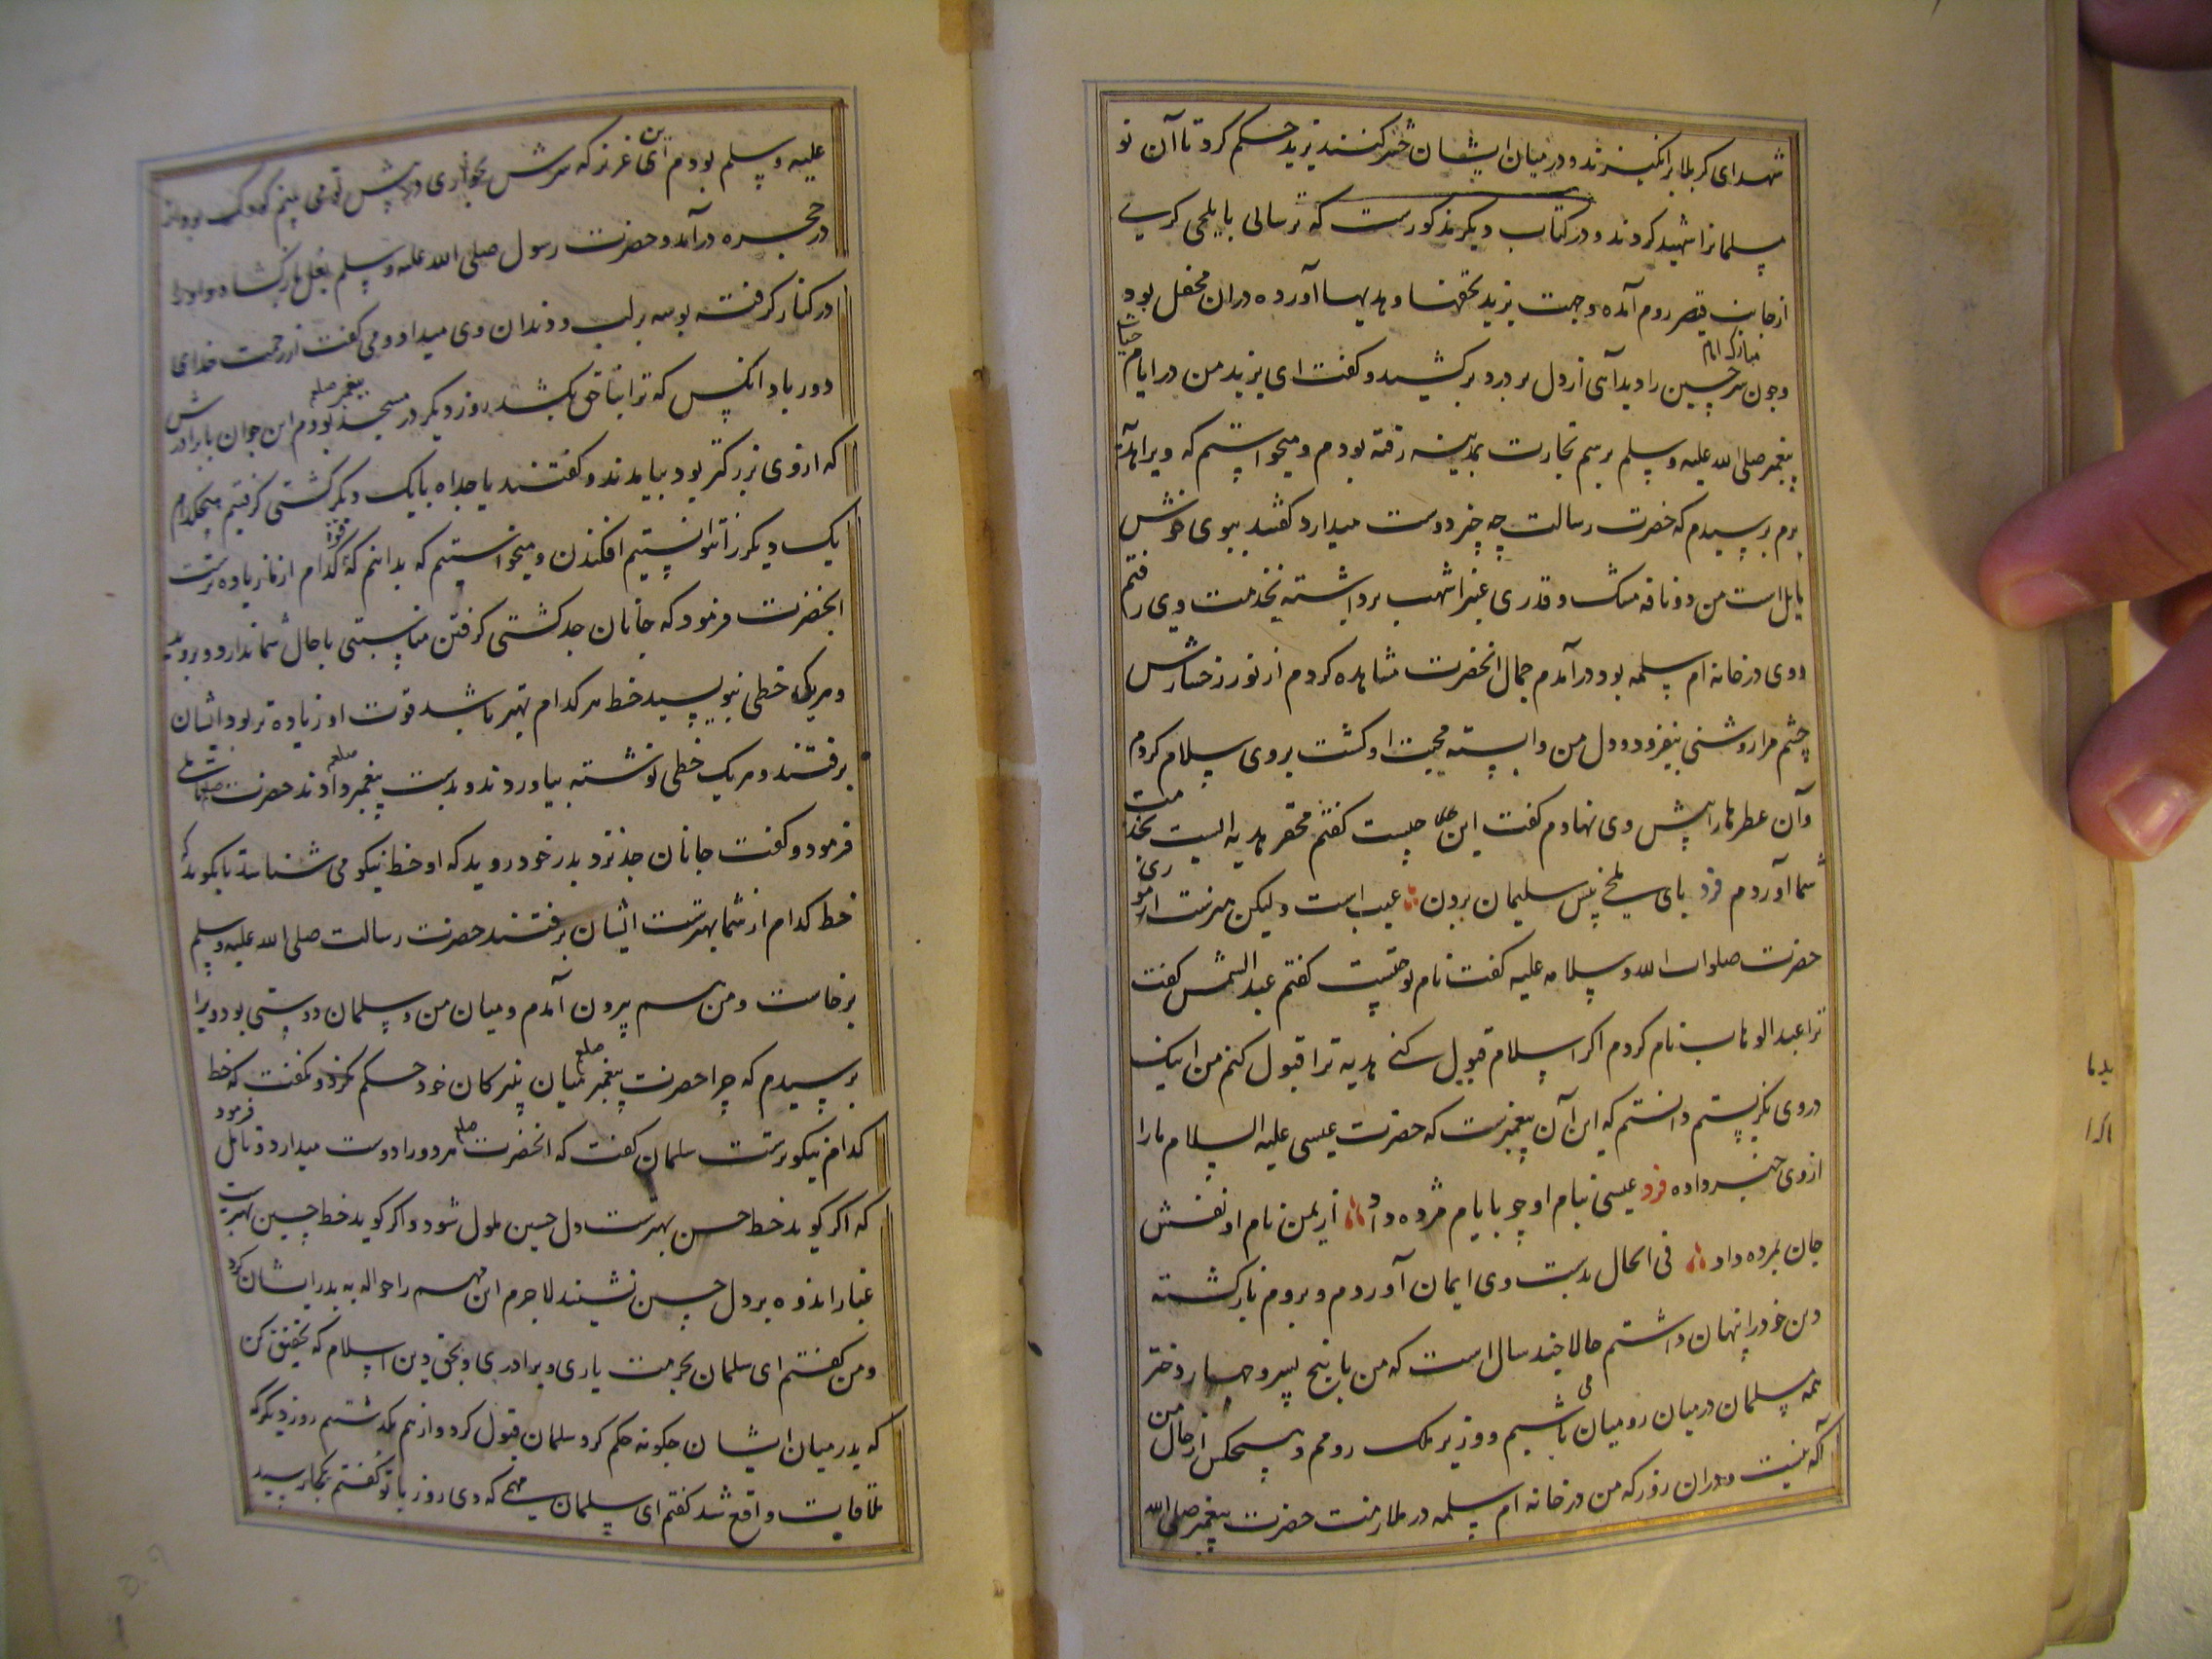 شهدای کربلا برانگیزند و در میان ایشان حشر کنند یزید حکم کرد تا آن نو
مسلمانرا شهید کردند و در کتاب دیگر مذکورست که ترسائی با یلچی کری
از جانب قیصر روم آمده و جهت یزید تحفها و هدیها آورده دران محفل بود
وچون سر مبارک امام حسین را دید آهی از دل پر درد برکشید و کفت ای یزید من در ایام حیات
پیغمبر صلی الله علیه وسلم برسم تجارت بمدینه رفته بودم و میخواستم که ویرا هدیه
برم پرسیدم که حضرت رسالت چه چیز دوست میدارد کفتند ببوی خوش
مایل است من دو نافه مشک و قدری عنبر اشهب برداشته بخدمت وی رفتم
و وی در خانه ام سلمه بود در آمدم جمال انحضرت مشاهده کردم از نور رخسارش
چشم مرا روشنی بیفزود و دل من وابسته محبت او کشت بر وی سلام کردم
و آن عطرها را پیش وی نهادم کفت این چیست کفتم محقر هدیه ایست بخدمت
شما آوردم فرد پای ملخی پیش سلیمان بردن عیب است ولیکن هنرست از موری
حضرت صلوات الله وسلامه علیه کفت نام تو چیست کفتم عبد الشمس کفت
ترا عبد الوهاب نام کردم اکر اسلام قبول کنی هدیه ترا قبول کنم من نیک
در وی نکریستم دانستم که این آن پیغمبرست که حضرت عیسی علیه السلام ما را
از وی خبر داده فرد عیسی بنام او چو بایام مژده داد از یمن نام او نفسش
جان بمرده داد فی الحال بدست وی ایمان آوردم و بروم بازکشته
دین خود را پنهان داشتم حالا چند سال است که من با پنج پسر و چهار دختر
همه مسلمان در میان رومیان می باشیم و وزیر ملک رومم و هیچکس از حال من
آکه نیست و دران روز که من در خانه ام سلمه در ملازمت حضرت پیغمبر صلی الله
علیه وسلم بودم این عزیز که سرش بخواری در پیش تو می بینم کودک بود از
در حجره درآمد و حضرت رسول صلی الله علیه وسلم بغل باز کشاد و او را
در کنار کرفته بوسه بر لب و دندان وی میداد و می کفت از رحمت خدای
دور باد انکس که ترا بناحق بکشد روز دیکر در مسجد پیغمبر صلعم بودم این جوان با برادرش
که از وی بزرکتر بود بیامدند و کفتند یا جداه با یک دیکر کشتی کرفتیم هیچکدام
یک دیکر را نتوانستیم افکندن و میخواستیم که بدانیم که قوة کدام از ما زیاده ترست
انحضرت فرمود که جانان جد کشتی کرفتن مناسبتی با حال شما ندارد و بروید
و هریک خطی نویسید خط هر کدام بهتر باشد قوت او زیاده تر بود ایشان
برفتند و هریک خطی نوشته بیاوردند و بدست پیغمبر صلعم دادند حضرت صلعم تاملی
فرمود و کفت جانان جد نزد پدر خود روید که او خط نیکو می شناسد تا بکوید که
خط کدام از شما بهترست ایشان برفتند حضرت رسالت صلی الله علیه وسلم
برخاست و من هم بیرون آمدم و میان من و سلمان دوستی بود ویرا
پرسیدم که چرا حضرت پیغمبر صلعم میان پسرکان خود حکم نکرد و نکفت که خط
کدام نیکوترست سلمان کفت که انحضرت صلعم هر دو را دوست میدارد و تامل فرمود
که اکر کوید خط حسن بهترست دل حسین ملول شود و اکر کوید خط حسین بهترست
غبار اندوه بر دل حسن نشیند لاجرم این مهم را حواله به پدر ایشان کرد
و من کفتم ای سلمان بحرمت یاری و برادری و بحق دین اسلام که تحقیق کن
که پدر میان ایشان چکونه حکم کرد سلمان قبول کرد و از هم بکذشتیم روز دیکر که
ملاقات واقع شد کفتم ای سلمان مهمی که دی روز با تو کفتم بکجا رسید